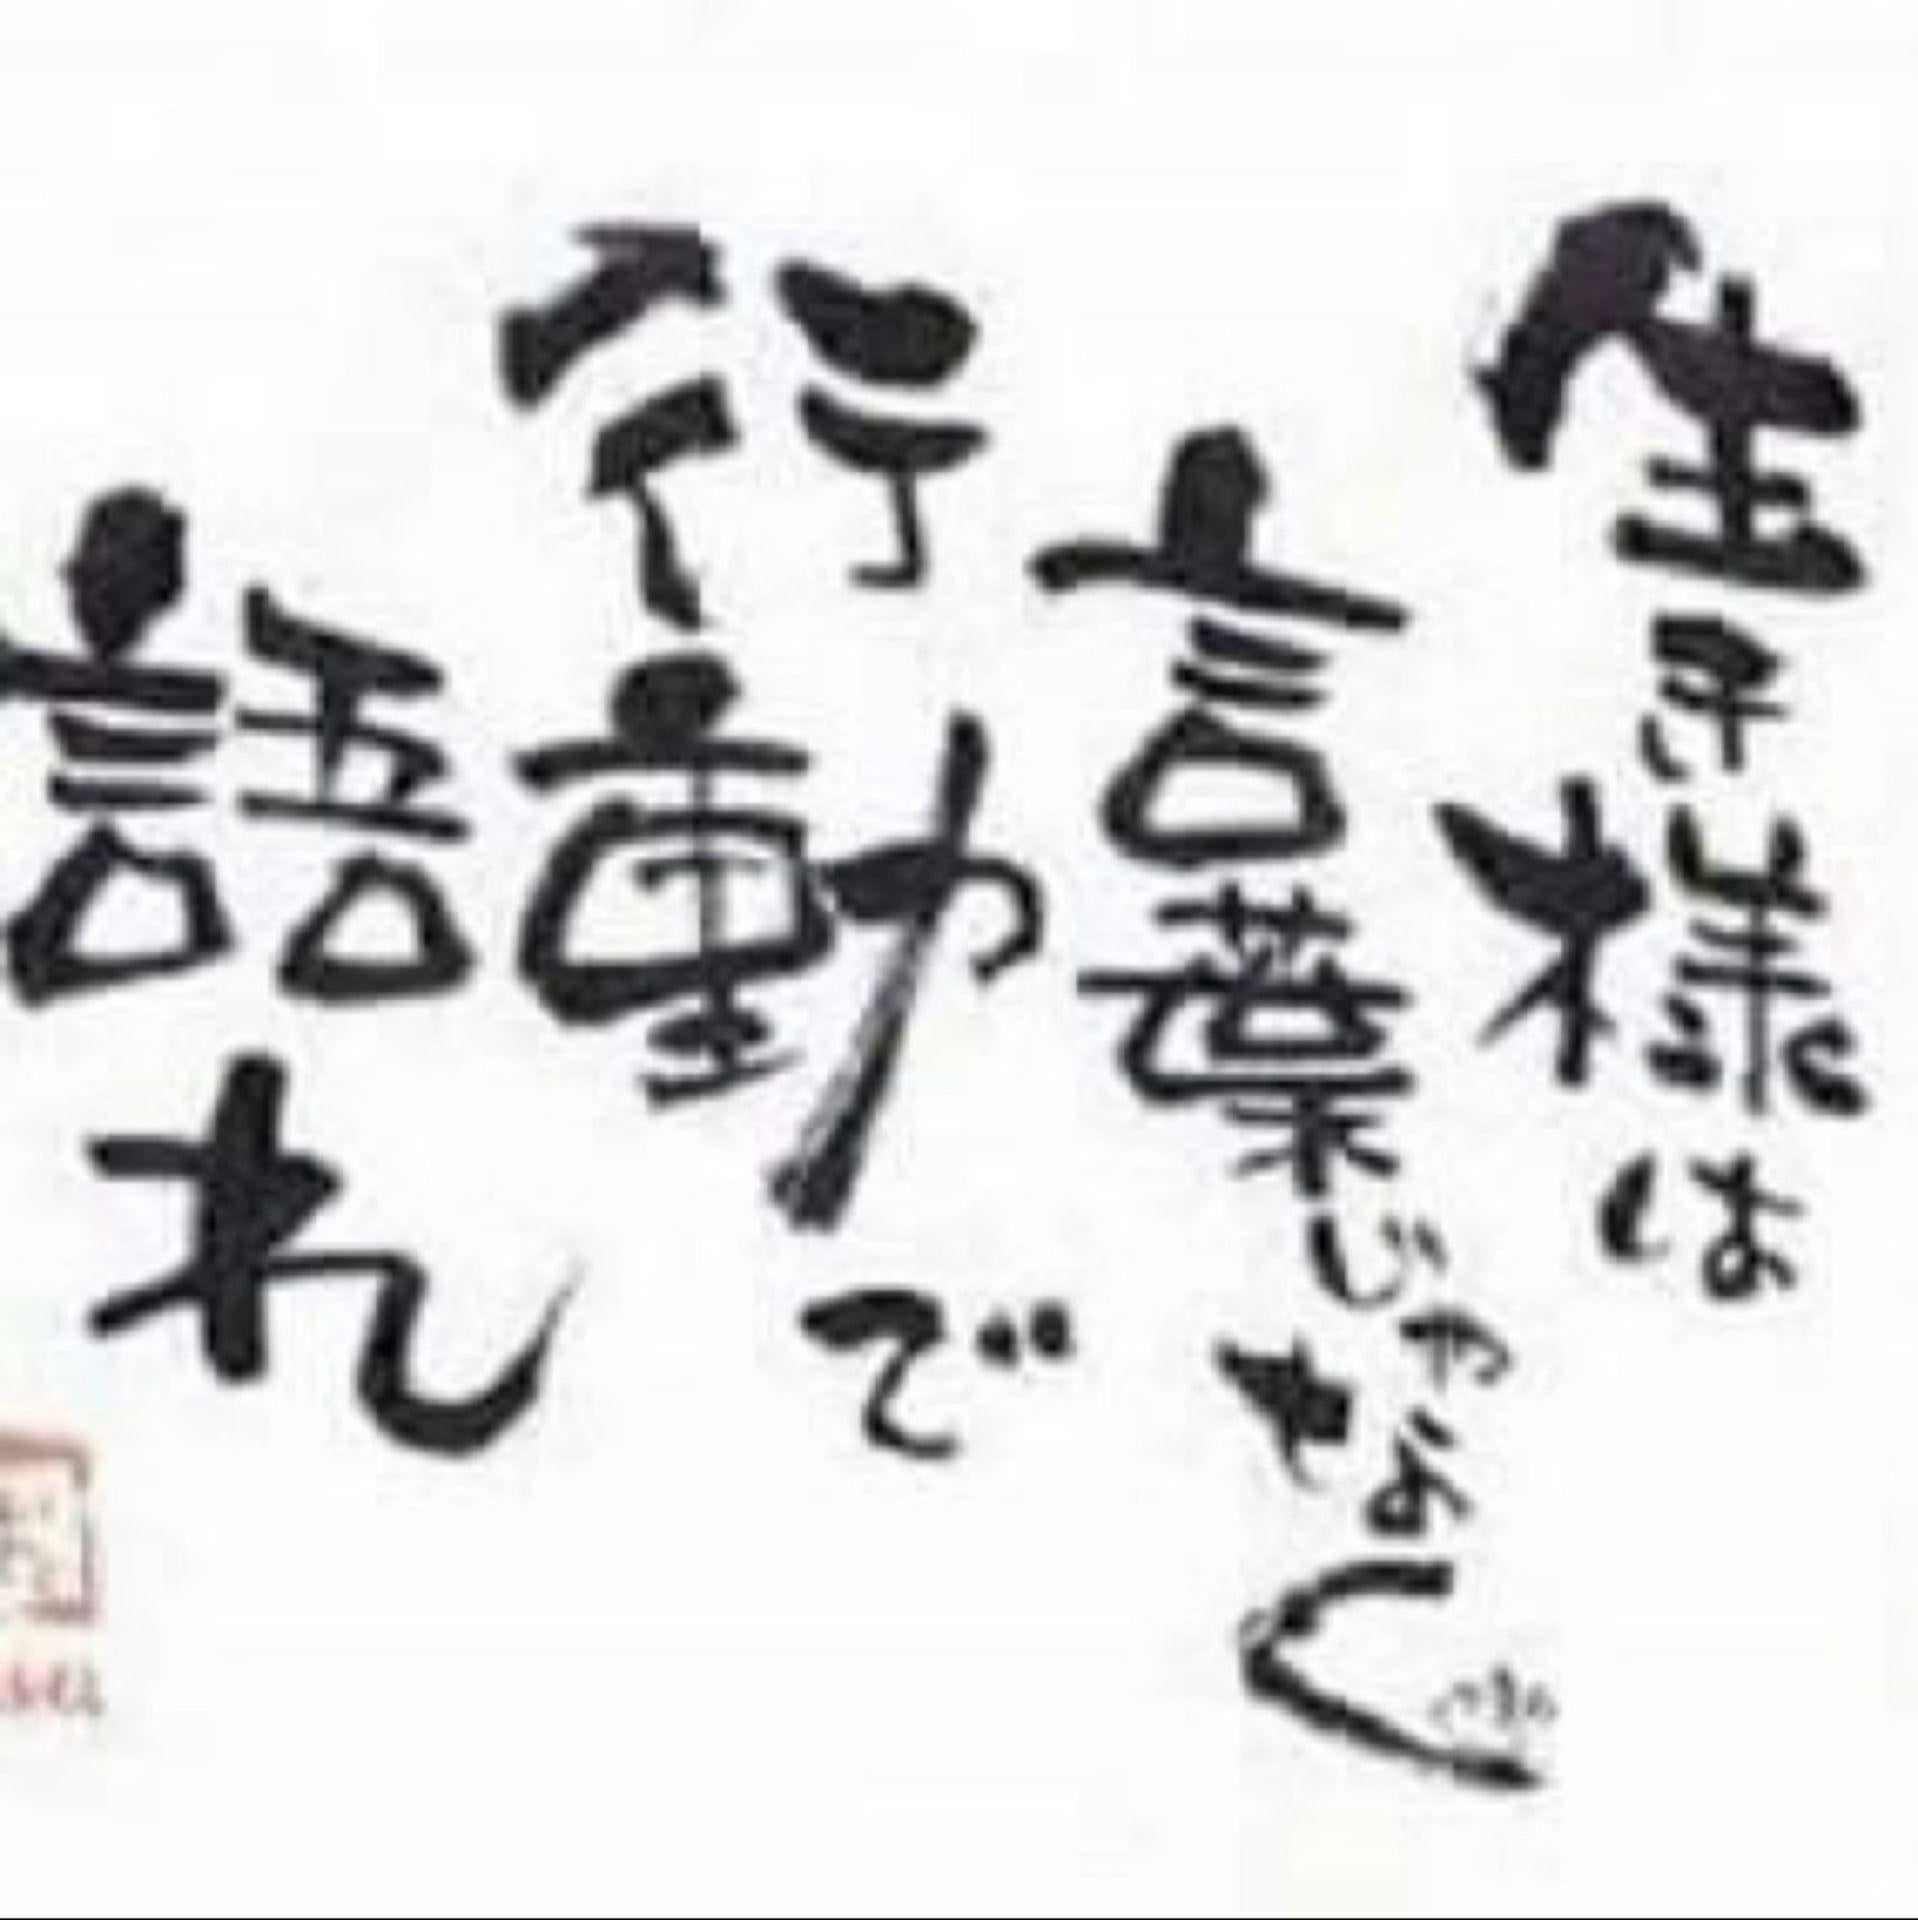 生き様は
言葉じゃなく
行動で
語れ